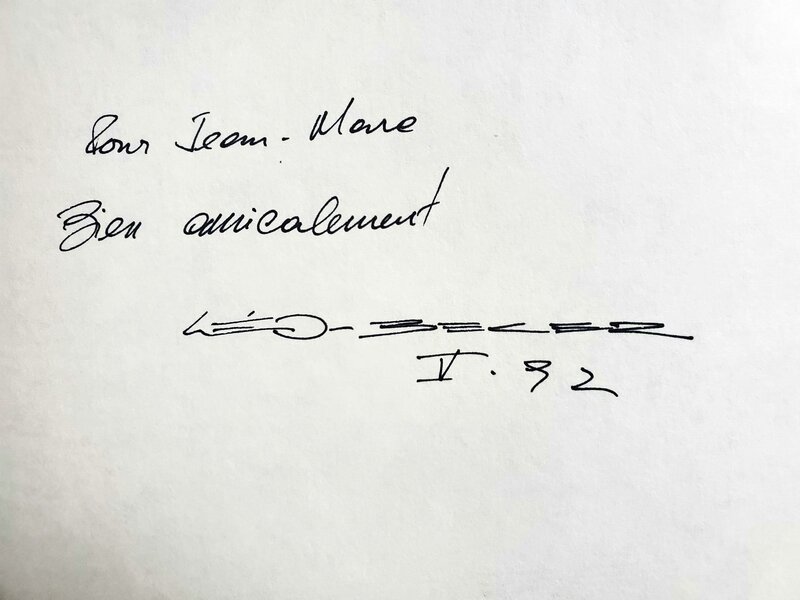 Pour Jean-Marc
Bien amicalement
LÉO-BECKER
V.92